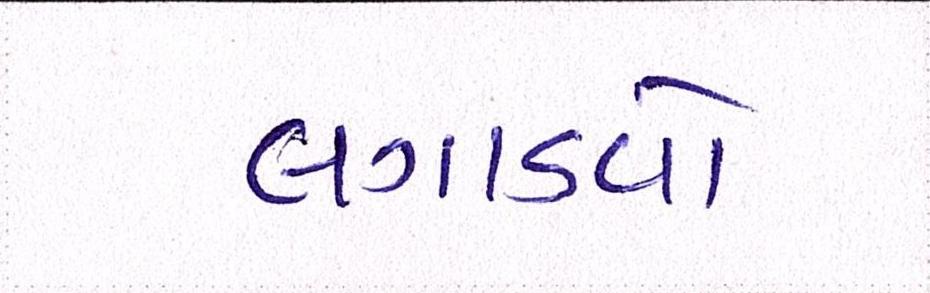 લગાડવો